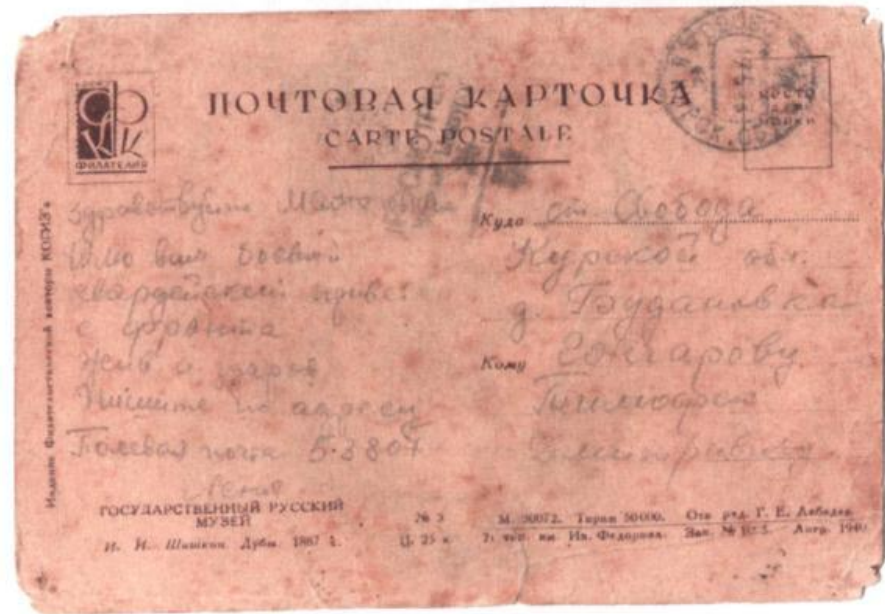 ФИЛАТЕЛИЯ
ПОЧТОВАЯ КАРТОЧКА
CARTE POSTALE
МЕСТО
ДЛЯ
МАРКИ
Издание Филателистической конторы КОГИЗ'а
здравствуйте
Шлю вам боевой
гвардейский привет
с фронта
Жив и здоров
Пишите по адресу
Полевая почта 53807
Куда ст. Свобода
Курской обл.
д. Будановка
Кому Гончарову
Тимофею
Дмитриевичу
ГОСУДАРСТВЕННЫЙ РУССКИЙ
МУЗЕЙ
И. И. Шишкин. Дубы. 1887 г.
№ 3
Ц. 25 к.
Тираж 50 000. Отв. ред. Г. Е. Лебедев
тип. им. Ив. Федорова. Зак. №